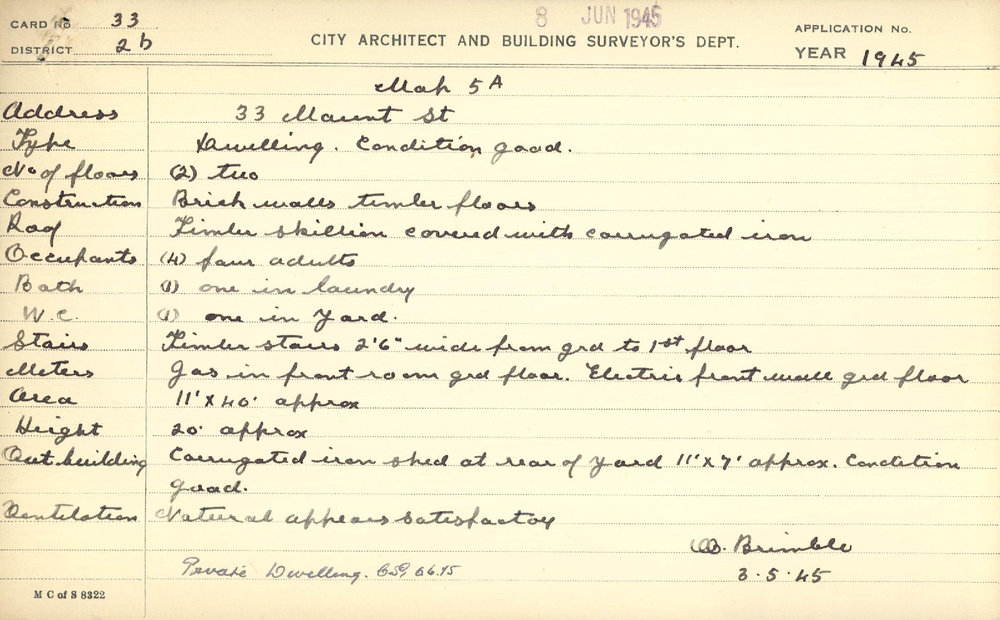 CARD No 33
8 JUN 1945
APPLICATION No.
DISTRICT 2b
CITY ARCHITECT AND BUILDING SURVEYOR'S DEPT.
YEAR 1945
Map 5A
Address 33 Mount St
Type Dwelling. Condition good.
No of floors (2) two
Construction Brick walls timber floors
Roof Timber skillion covered with corrugated iron
Occupants (4) four adults
Bath (1) one in laundry
W.C. (1) one in yard.
Stairs Timber stairs 2'6" wide from grd to 1st floor
Meters Gas in front room grd floor. Electric front wall grd floor
Area 11' x 40' approx
Height 20' approx
Out building Corrugated iron shed at rear of yard 11' x 7' approx. Condition
good.
Ventilation Natural appears satisfactory
Brimble
Private Dwelling.
3.5.45
M C of S 8322